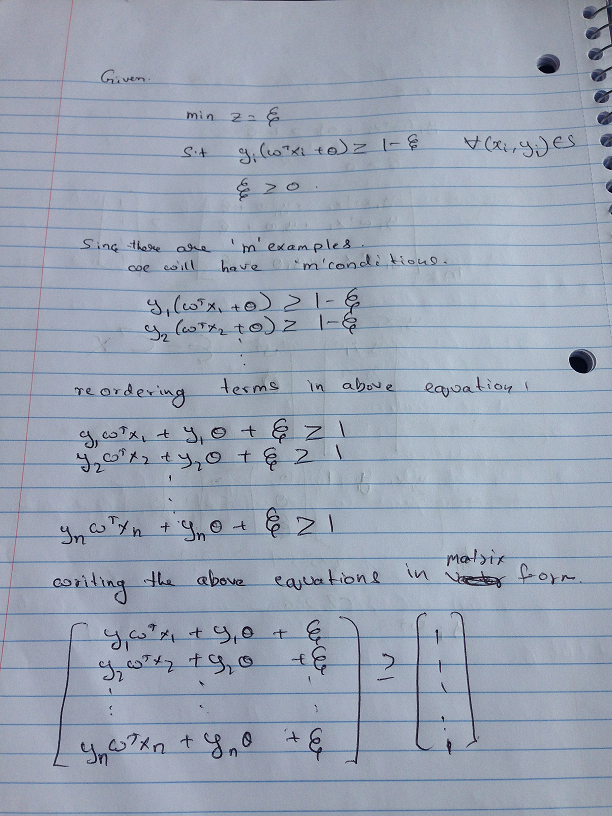 Given.
min z = ξ
S.t yᵢ(ωᵀxᵢ + θ) ≥ 1 - ξ ∀(xᵢ, yᵢ) ∈ S
ξ ≥ 0.
Sinc there are 'm' examples.
we will have 'm' conditions.
y₁(ωᵀx₁ + θ) ≥ 1 - ξ
y₂(ωᵀx₂ + θ) ≥ 1 - ξ
⋮
reordering terms in above equation,
y₁ωᵀx₁ + y₁θ + ξ ≥ 1
y₂ωᵀx₂ + y₂θ + ξ ≥ 1
⋮
yₙωᵀxₙ + yₙθ + ξ ≥ 1
writing the above equations in matrix form.
[ y₁ωᵀx₁ + y₁θ + ξ ] [ 1 ]
[ y₂ωᵀx₂ + y₂θ + ξ ] ≥ [ 1 ]
[ ⋮ ⋮ ⋮ ] [ ⋮ ]
[ yₙωᵀxₙ + yₙθ + ξ ] [ 1 ]